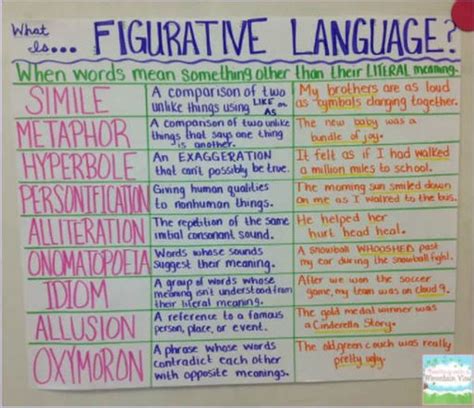 What Is... FIGURATIVE LANGUAGE?
When words mean something other than their LITERAL meaning.
SIMILE
A comparison of two
unlike things using LIKE or
AS
My brothers are as loud
as cymbals clanging together.
METAPHOR
A comparison of two unlike
things that says one thing
is another.
The new baby was a
bundle of joy.
HYPERBOLE
An EXAGGERATION
that can't possibly be true.
It felt as if I had walked
a million miles to school.
PERSONIFICATION
Giving human qualities
to nonhuman things.
The morning sun smiled down
on me as I walked to the bus.
ALLITERATION
The repetition of the same
initial consonant sound.
He helped her
hurt head heal.
ONOMATOPOEIA
Words whose sounds
suggest their meaning.
A snowball WHOOSHED past
my ear during the snowball fight.
IDIOM
A group of words whose
meaning isn't understood from
their literal meaning.
After we won the soccer
game, my team was on cloud 9.
ALLUSION
A reference to a famous
person, place, or event.
The gold medal winner was
a Cinderella Story.
OXYMORON
A phrase whose words
contradict each other
with opposite meanings.
The old, green couch was really
pretty ugly.
Mountain View